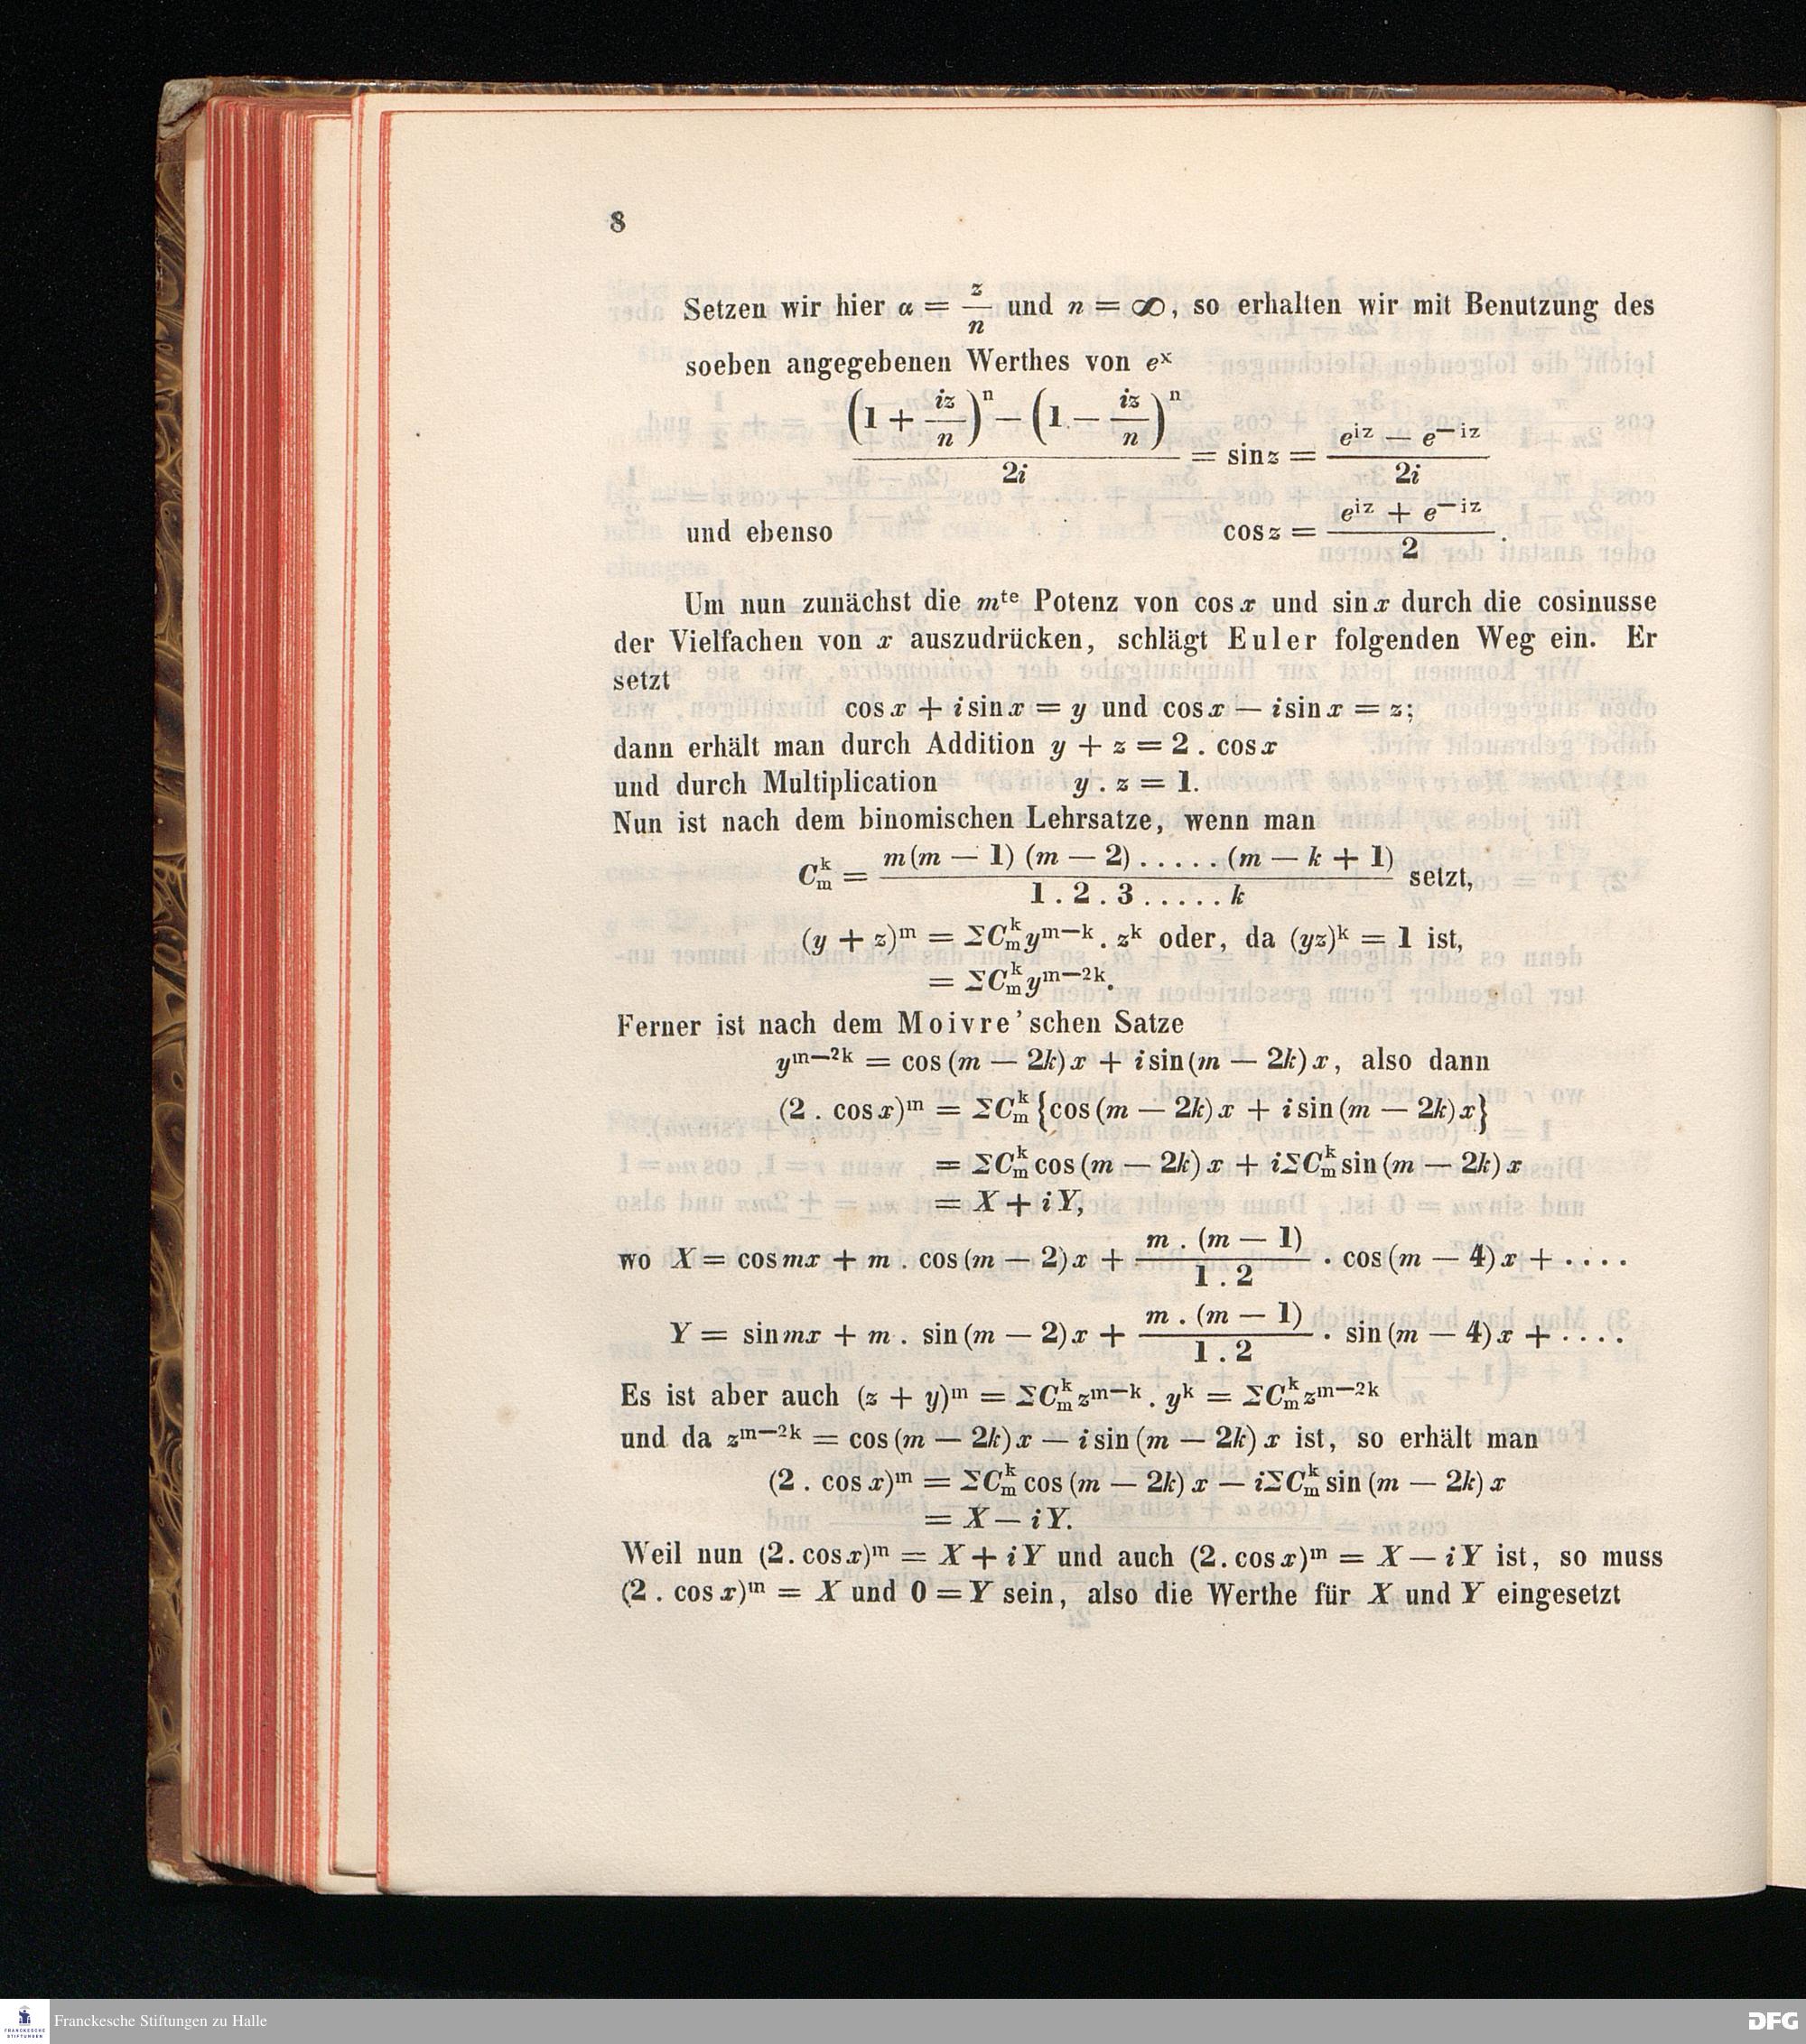 8
Setzen wir hier α = z/n und n = ∞, so erhalten wir mit Benutzung des
soeben angegebenen Werthes von e^x
((1 + iz/n)^n − (1 − iz/n)^n) / 2i = sin z = (e^{iz} — e^{−iz}) / 2i
und ebenso cos z = (e^{iz} + e^{−iz}) / 2.
Um nun zunächst die m^{te} Potenz von cos x und sin x durch die cosinusse
der Vielfachen von x auszudrücken, schlägt Euler folgenden Weg ein. Er
setzt
cos x + i sin x = y und cos x — i sin x = z;
dann erhält man durch Addition y + z = 2 . cos x
und durch Multiplication y . z = 1.
Nun ist nach dem binomischen Lehrsatze, wenn man
C_m^k = m(m — 1) (m — 2) . . . . . (m — k + 1) / 1 . 2 . 3 . . . . . k setzt,
(y + z)^m = ΣC_m^k y^{m—k} . z^k oder, da (yz)^k = 1 ist,
= ΣC_m^k y^{m—2k}.
Ferner ist nach dem Moivre'schen Satze
y^{m—2k} = cos (m — 2k) x + i sin (m — 2k) x, also dann
(2 . cos x)^m = ΣC_m^k {cos (m — 2k) x + i sin (m — 2k) x}
= ΣC_m^k cos (m — 2k) x + iΣC_m^k sin (m — 2k) x
= X + i Y,
wo X = cos mx + m . cos (m — 2) x + m . (m — 1) / 1 . 2 · cos (m — 4) x + . . . .
Y = sin mx + m . sin (m — 2) x + m . (m — 1) / 1 . 2 · sin (m — 4) x + . . . .
Es ist aber auch (z + y)^m = ΣC_m^k z^{m—k} . y^k = ΣC_m^k z^{m—2k}
und da z^{m—2k} = cos (m — 2k) x — i sin (m — 2k) x ist, so erhält man
(2 . cos x)^m = ΣC_m^k cos (m — 2k) x — iΣC_m^k sin (m — 2k) x
= X — i Y.
Weil nun (2. cos x)^m = X + i Y und auch (2. cos x)^m = X — i Y ist, so muss
(2 . cos x)^m = X und 0 = Y sein, also die Werthe für X und Y eingesetzt
FRANCKESCHE
STIFTUNGEN
Franckesche Stiftungen zu Halle
DFG